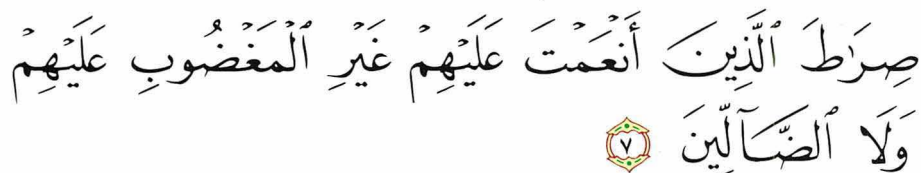 صِرَٰطَ ٱلَّذِينَ أَنۡعَمۡتَ عَلَيۡهِمۡ غَيۡرِ ٱلۡمَغۡضُوبِ عَلَيۡهِمۡ
وَلَا ٱلضَّآلِّينَ ٧